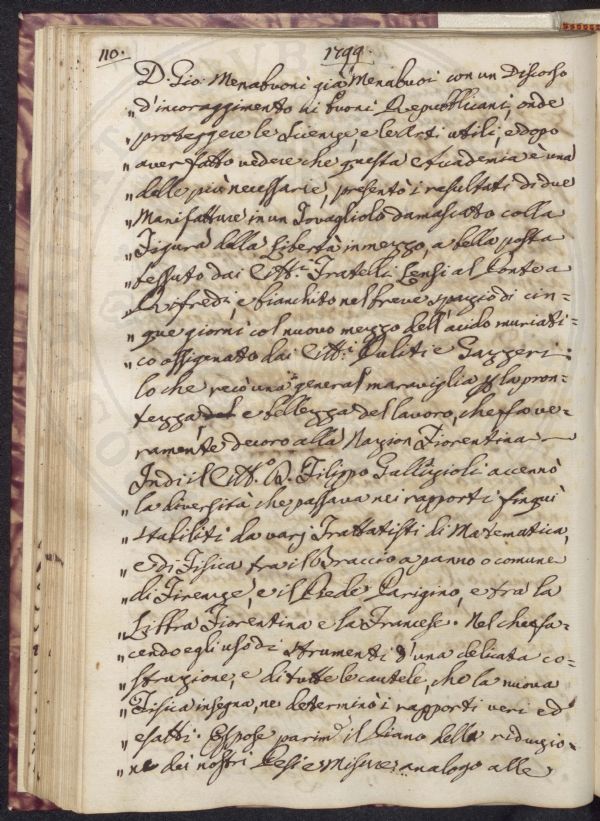 110.
1799.
D. Gio: Menabuoni già Menabuoi con un Discorso
" d'incoraggimento ai buoni Repubblicani, onde
" proteggere le Scienze, e le Arti utili, e dopo
" aver fatto vedere che questa Accademia è una
" delle più necessarie, presentò i resultati di due
" Manifatture in un Tovagliolo damascato colla
" Figura della Libertà in mezzo, a bella posta
" tessuto dai Citt.ⁱ Fratelli Lensi al Ponte a
" Rifredi, e bianchito nel breve spazio di cin=
" que giorni col nuovo mezzo dell'acido muriati=
" co ossigenato dai Citt.ⁱ Puliti e Gazzeri:
lo che recò una general maraviglia p la pron=
tezza, e bellezza del lavoro, che fa ve=
ramente decoro alla Nazion Fiorentina
Indi il Citt.º D. Filippo Gallizioli accennò
" la diversità che passava nei rapporti fin qui
" stabiliti da varj Trattatisti di Matematica,
" e di Fisica tra il Braccio a panno o comune
" di Firenze, e il Piede Parigino, e tra la
" Libbra Fiorentina e la Francese. Nel che fa=
" cendo egli uso di strumenti d'una delicata co=
" struzione, e di tutte le cautele, che la nuova
" Fisica insegna, ne determinò i rapporti veri ed
" esatti. Espose parim.ᵉ il Piano della riduzio=
" ne dei nostri Pesi e Misure analogo alle